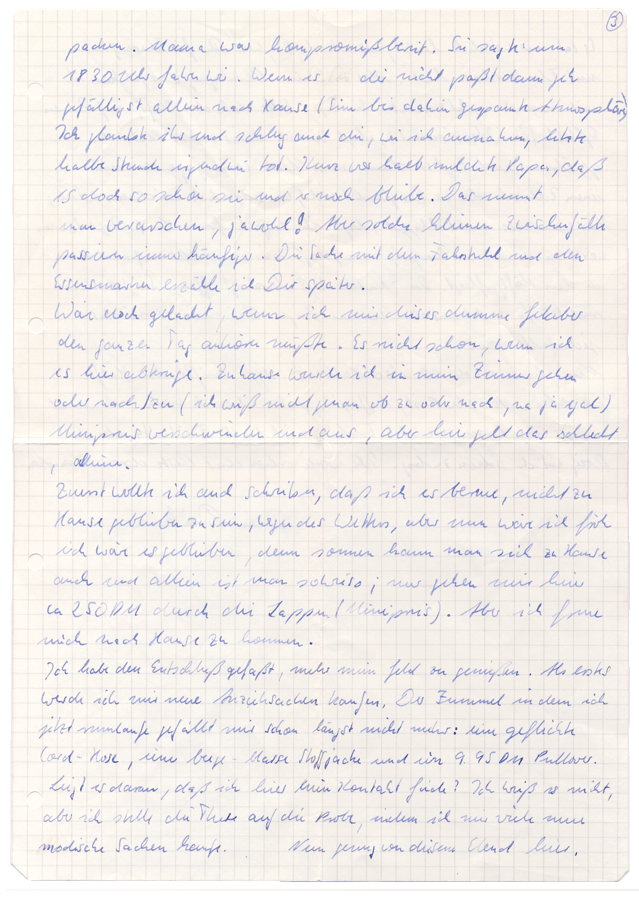 3
packen. Mama war kompromißbereit. Sie sagte um
18 30 Uhr fahren wir. Wenn es dir nicht paßt dann geh
gefälligst allein nach Hause (Eine bis dahin gespannte Atmosphäre)
Ich glaubte ihr und schlug auch die, wie ich annahm, letzte
halbe Stunde irgendwie tot. Kurz vor halb meldete Papa, daß
es doch so schön sei und er noch bleibe. Das nennt
man verarschen, jawohl! Aber solche kleinen Zwischenfälle
passieren immer häufiger. Die Sache mit dem Fahrstuhl und den
Essensmarken erzähle ich Dir später.
Wär doch gelacht, wenn ich mir dieses dumme Gelaber
den ganzen Tag anhören müßte. Es reicht schon, wenn ich
es hier abkriege. Zuhause würde ich in mein Zimmer gehen
oder nach/zu (ich weiß nicht genau ob zu oder nach, na ja egal)
Minipreis verschwinden und aus, aber hier geht das schlecht
, alleine.
Zuerst wollte ich auch schreiben, daß ich es bereue, nicht zu
Hause geblieben zu sein, wegen des Wetters, aber nun wäre ich froh
ich wär es geblieben, denn sonnen kann man sich zu Hause
auch und allein ist man sowieso; nur gehen mir hier
ca 250 DM durch die Lappen (Minipreis). Aber ich freue
mich nach Hause zu kommen.
Ich habe den Entschluß gefaßt, mehr mein Geld zu genießen. Als erstes
werde ich mir neue Anziehsachen kaufen. Der Fummel in dem ich
jetzt rumlaufe gefällt mir schon längst nicht mehr: eine geflickte
Cord-Hose, eine beige- Stoffjacke und ein 9.95 DM Pullover.
Liegt es daran, daß ich hier kein Kontakt finde? Ich weiß es nicht,
aber ich stelle die These auf die Probe, indem ich mir viele neue
modische Sachen kaufe. Nun genug von diesem Elend hier.